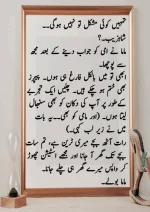 تمہیں کوئی مشکل تو نہیں ہوگی۔۔
شاہزیب۔۔؟
ماما نے امی کو جواب دینے کے بعد مجھ
سے پوچھا۔
ابھی تو میں بالکل فارغ ہی ہوں۔ پیپرز
بھی ختم ہو چکے ہیں۔ چلیں ایک تجربے
کے طور پر آپ کی دکان کو بھی سنبھال
لیتا ہوں۔ (اور مامی کو بھی۔۔۔ یہ بات
میں نے زیر لب کہی۔)
رات آٹھ بجے میری ٹرین ہے، تم سات
بجے تک گھر آ جانا اور مجھے اسٹیشن چھوڑ
کر واپس میرے گھر ہی چلے جانا۔
ماما بولے۔